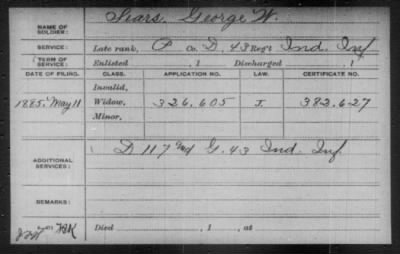 NAME OF SOLDIER: Shars, George W.
SERVICE: Late rank, P Co. D, 43 Reg't Ind. Inf
TERM OF SERVICE: Enlisted , 1 Discharged , 1
DATE OF FILING. CLASS. APPLICATION NO. LAW. CERTIFICATE NO.
Invalid,
1885, May 11 Widow, 326,605 J. 382,627
Minor,
ADDITIONAL SERVICES: D 117 Ind G. 43 Ind. Inf.
REMARKS:
Died , 1 , at